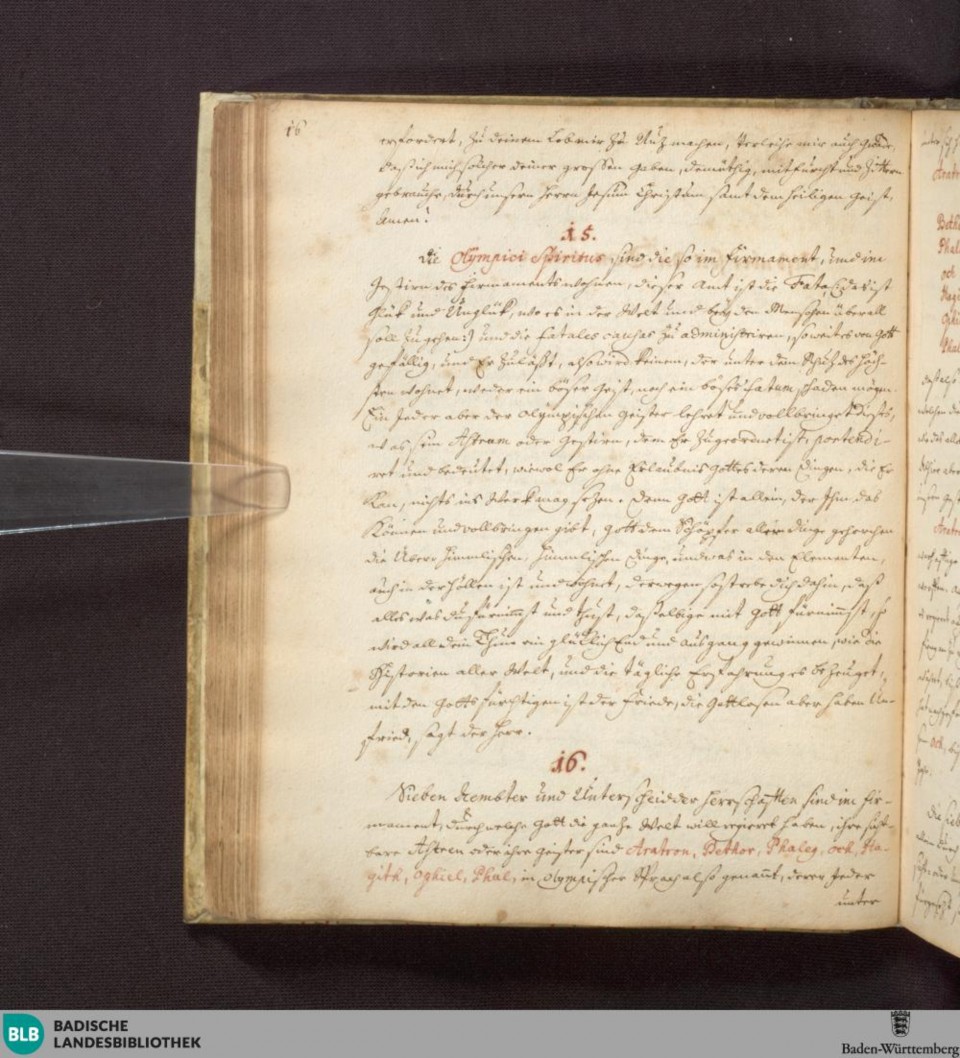 16
erfordert, zu deinem Lob mir zu Nuz machen, Verleihe mir auch Gnade,
daß ich mich solcher deiner grossen Gaben, demüthig, mit furcht und Zittern
gebrauche, durch unsern Herrn Jesum Christum, samt dem heiligen Geist,
Amen!
15.
Die Olympici Spiritus sind die so im Firmament, und im
Gestirn des Firmaments wohnen, dieser Amt ist die Fata (: das ist
Glük und Unglük, wie es in der Welt und bey den Menschen überall
soll zugehen :) und die fatales causas zu administriren, so weit es Gott
gefällig, und Er zuläßt, also wird keinem, der unter dem Schuz des Höch-
sten wohnet, weder ein böser Geist, noch ein böses fatum, schaden mögen.
Ein Jeder aber der Olympischen Geister lehret und vollbringet dieses,
was sein Astrum oder Gestirn, dem Er zugeordnet ist, portendi-
ret und bedeutet, wiewol Er ohne Erlaubnis Gottes deren Dingen, die Er
Kan, nichts ins Werk mag sezen. Denn Gott ist allein, der Ihm das
Können und vollbringen gibt, Gott dem Schöpfer aller dinge gehorchen
die Über-himmlischen, himmlischen dinge, und was in den Elementen,
auch in der Höllen ist und wohnet, derwegen so strebe dich dahin, daß
alles was du fürnimst und thust, dasselbige mit Gott fürnimst, so
wird all dein Thun ein glüklich End und Ausgang gewinnen, wie die
Historien aller Welt, und die tägliche Erfahrung es bezeuget,
mit den Gottsfürchtigen ist der friede, die Gottlosen aber haben Un-
fried, sagt der Herr.
16.
Sieben Aembter und Unterscheid der Herrschafften sind im Fir-
mament, durch welche Gott die ganze Welt will regieret haben, ihre sicht-
bare Astren oder ihre Geister sind Aratron, Bethor, Phaleg, Och, Ha-
gith, Ophiel, Phul, in Olympischer Sprach also genant, deren Jeder
unter
Aratr
Beth
Phal
och
Hagi
Ophi
Phul
Aratro
Och,
BLB
BADISCHE
LANDESBIBLIOTHEK
Baden-Württemberg